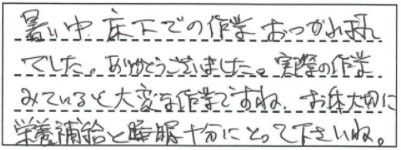 暑い中 床下での作業 おつかれ様
でした。ありがとうございました。実際の作業
みていると大変な作業ですね。お体大切に
栄養補給と睡眠十分にとって下さいね。